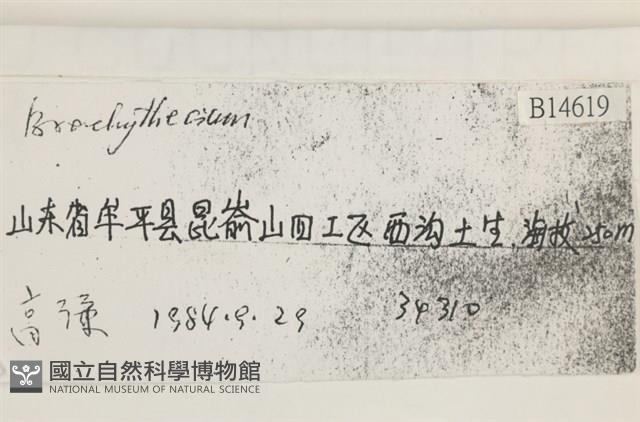 B14619
Brachythecium
山东省牟平县昆嵛山四工区西沟土生,海拔250m
高 1984.9.29 34310
國立自然科學博物館
NATIONAL MUSEUM OF NATURAL SCIENCE